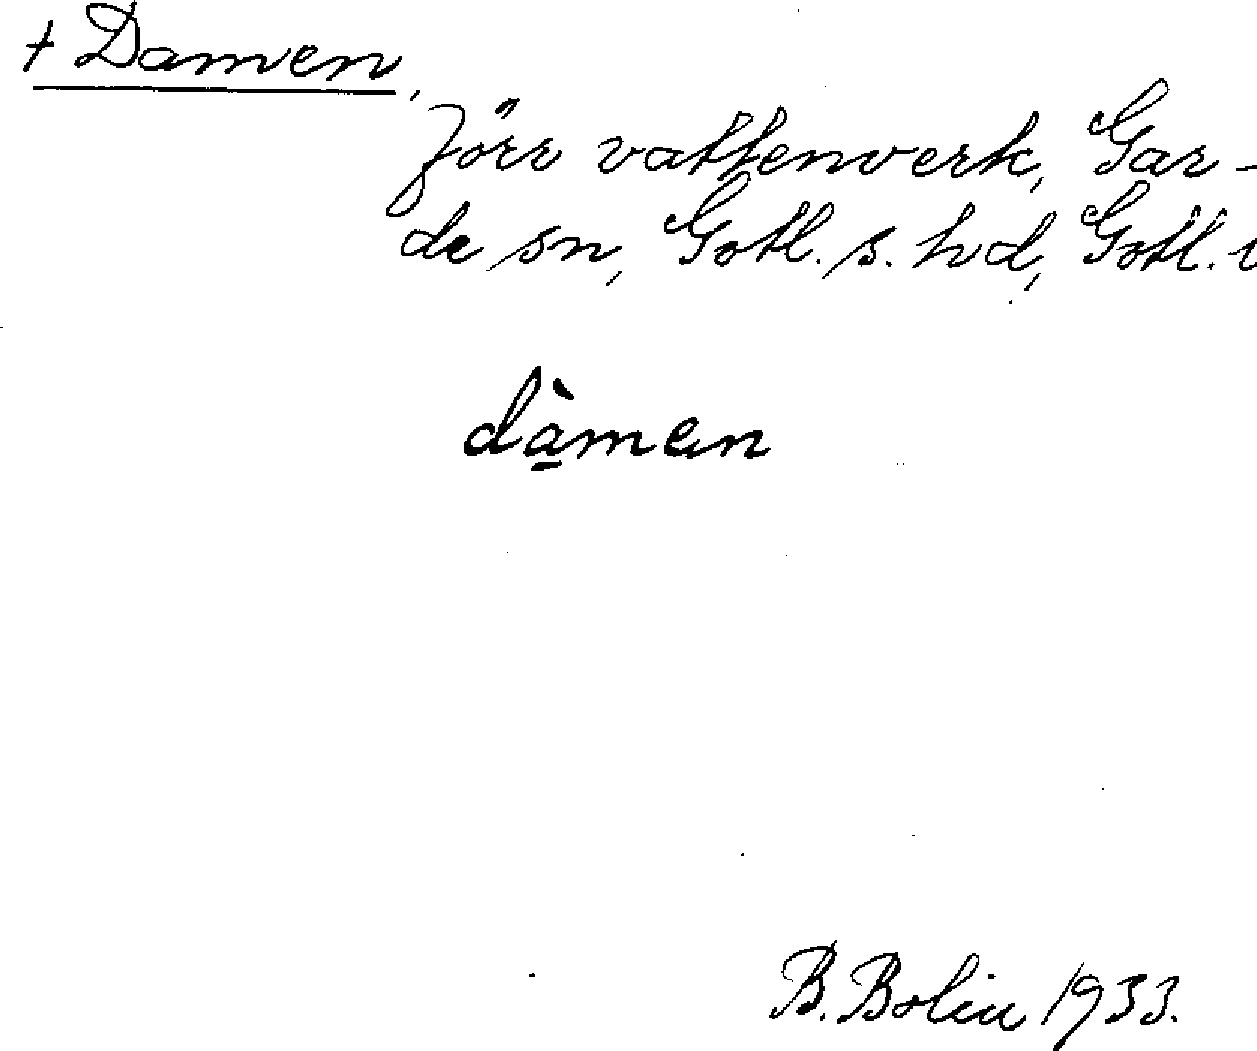 + Damen,
förr vattenverk, Gar-
de sn, Gotl. s. hd, Gotl.
dàmen
B. Bolin 1933.